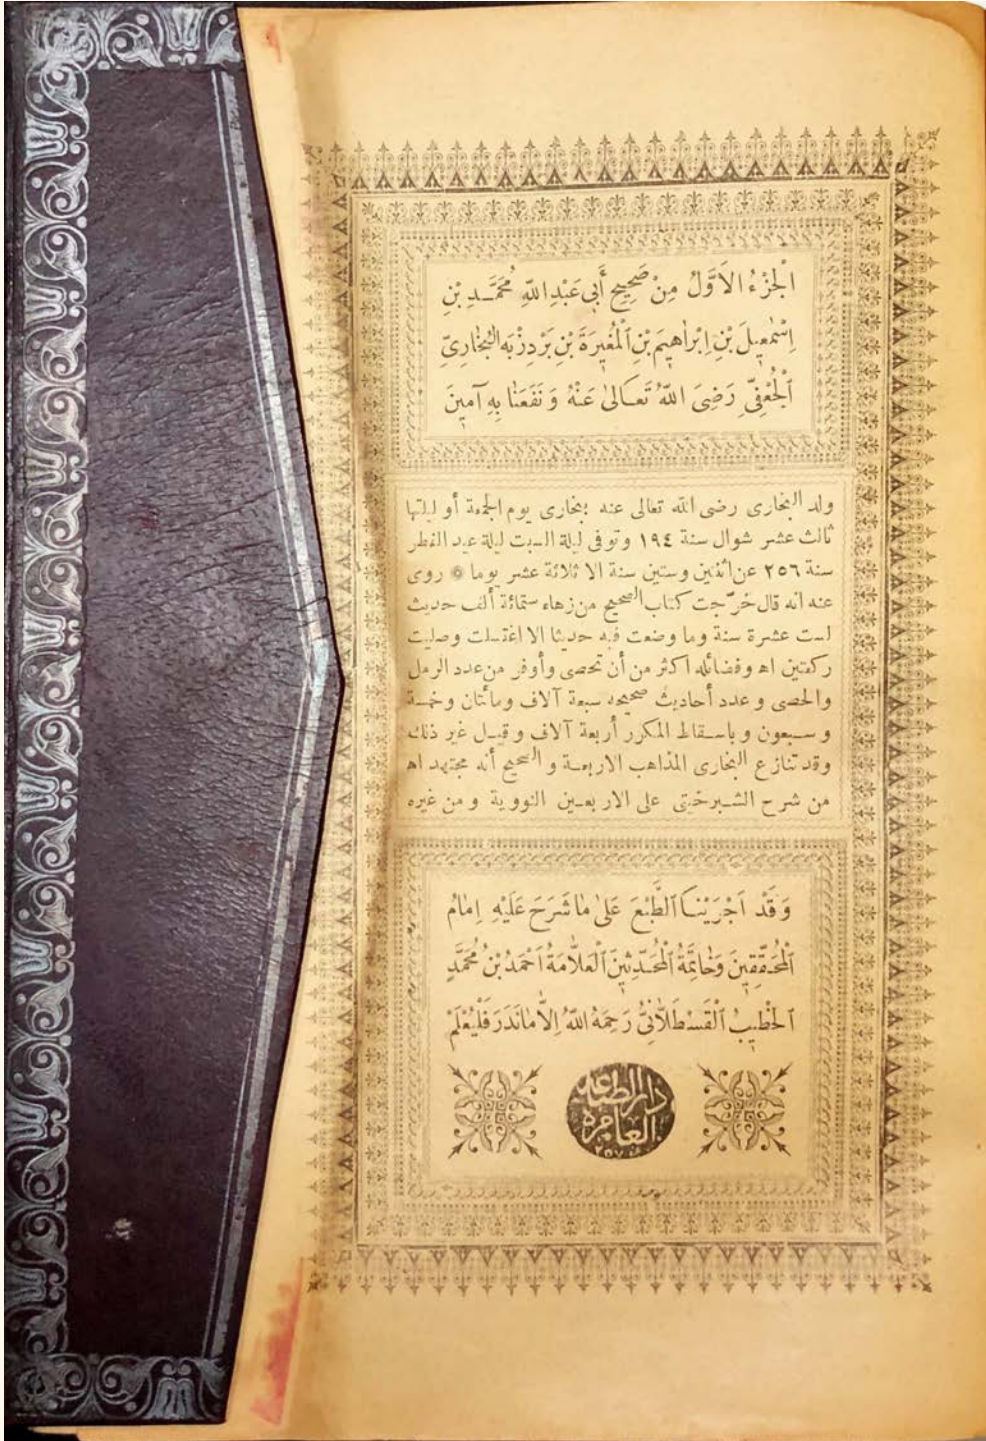 اَلْجُزْءُ الْاَوَّلُ مِنْ صَحِيحِ أَبِي عَبْدِ اللّٰهِ مُحَمَّدِ بْنِ
اِسْمٰعِيلَ بْنِ اِبْرَاهِيمَ بْنِ الْمُغِيرَةِ بْنِ بَرْدِزْبَه الْبُخَارِيِّ
اَلْجُعْفِيِّ رَضِىَ اللّٰهُ تَعَالٰى عَنْهُ وَنَفَعَنَا بِهِ آمِينَ
ولد البخارى رضى الله تعالى عنه ببخارى يوم الجمعة أو ليلتها
ثالث عشر شوال سنة ١٩٤ وتوفى ليلة السبت ليلة عيد الفطر
سنة ٢٥٦ عن اثنين وستين سنة الا ثلاثة عشر يوما ۞ روى
عنه انه قال خرّجت كتاب الصحيح من زهاء ستمائة ألف حديث
لست عشرة سنة وما وضعت فيه حديثا الا اغتسلت وصليت
ركعتين اه وفضائله اكثر من أن تحصى وأوفر من عدد الرمل
والحصى وعدد أحاديث صحيحه سبعة آلاف ومائتان وخمسة
وسبعون وباسقاط المكرر أربعة آلاف وقيل غير ذلك
وقد تنازع البخارى المذاهب الاربعة والصحيح أنه مجتهد اه
من شرح الشبرخيتى على الاربعين النووية ومن غيره
وَقَدْ اَجْرَيْنَا الطَّبْعَ عَلٰى مَا شَرَحَ عَلَيْهِ اِمَامُ
الْمُحَقِّقِينَ وَخَاتِمَةُ الْمُحَدِّثِينَ الْعَلَّامَةُ اَحْمَدُ بْنُ مُحَمَّدٍ
الْخَطِيبُ الْقَسْطَلَّانِىُّ رَحِمَهُ اللّٰهُ اِلَّا مَا نَدَرَ فَلْيُعْلَمْ
دار الطباعه
العامره